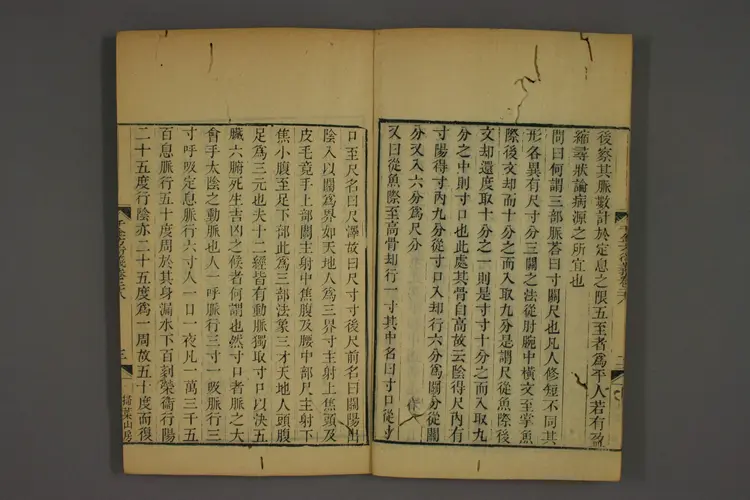 後察其脈數計於定息之限五至者為平人若有盈
縮尋狀論病源之所宜也
問曰何謂三部脈荅曰寸關尺也凡人修短不同其
形各異有尺寸分三關之法從肘腕中橫文至掌魚
際後文却而十分之而入取九分是謂尺從魚際後
文却還度取十分之一則是寸寸十分之而入取九
分之中則寸口也此處其骨自高故云陰得尺內有
寸陽得寸內九分從寸口入却行六分為關分從關
分又入六分為尺分
又曰從魚際至高骨却行一寸其中名曰寸口從寸
口至尺名曰尺澤故曰尺寸寸後尺前名曰關陽出
陰入以關為界如天地人為三界寸主射上焦頭及
皮毛竟手上部關主射中焦腹及腰中部尺主射下
焦小腹至足下部此為三部法象三才天地人頭腹
足為三元也夫十二經皆有動脈獨取寸口以決五
臟六腑死生吉凶之候者何謂也然寸口者脈之大
會手太陰之動脈也人一呼脈行三寸一吸脈行三
寸呼吸定息脈行六寸人一日一夜凡一萬三千五
百息脈行五十度周於其身漏水下百刻榮衛行陽
二十五度行陰亦二十五度為一周故五十度而復
三
掃葉山房